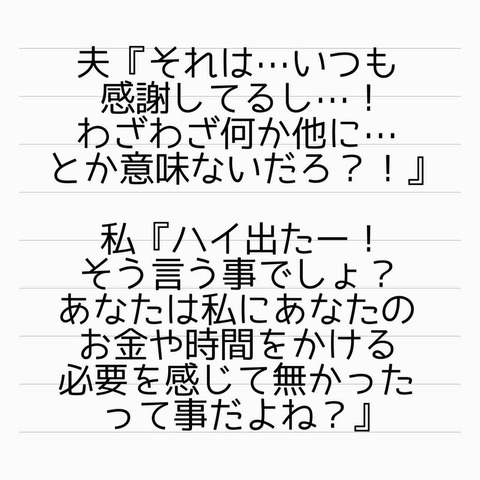 夫『それは…いつも
感謝してるし…！
わざわざ何か他に…
とか意味ないだろ？！』
私『ハイ出たー！
そう言う事でしょ？
あなたは私にあなたの
お金や時間をかける
必要を感じて無かった
って事だよね？』